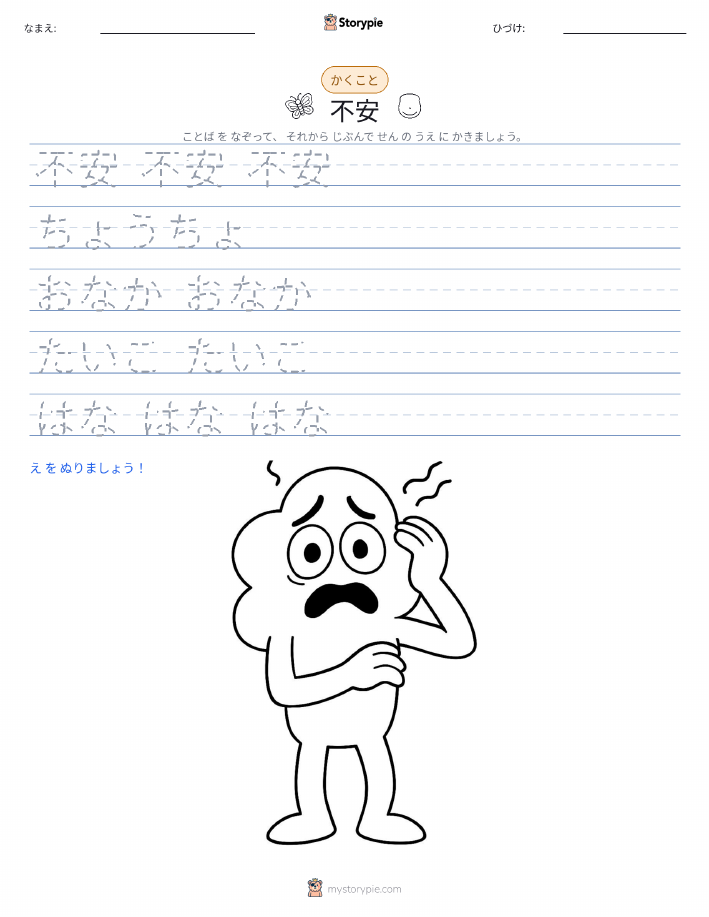 なまえ:
Storypie
ひづけ:
かくこと
不安
ことば を なぞって、 それから じぶんで せん の うえ に かきましょう。
不安 不安 不安
ちょうちょ
おなか おなか
たいこ たいこ
はな はな はな
え を ぬりましょう！
mystorypie.com